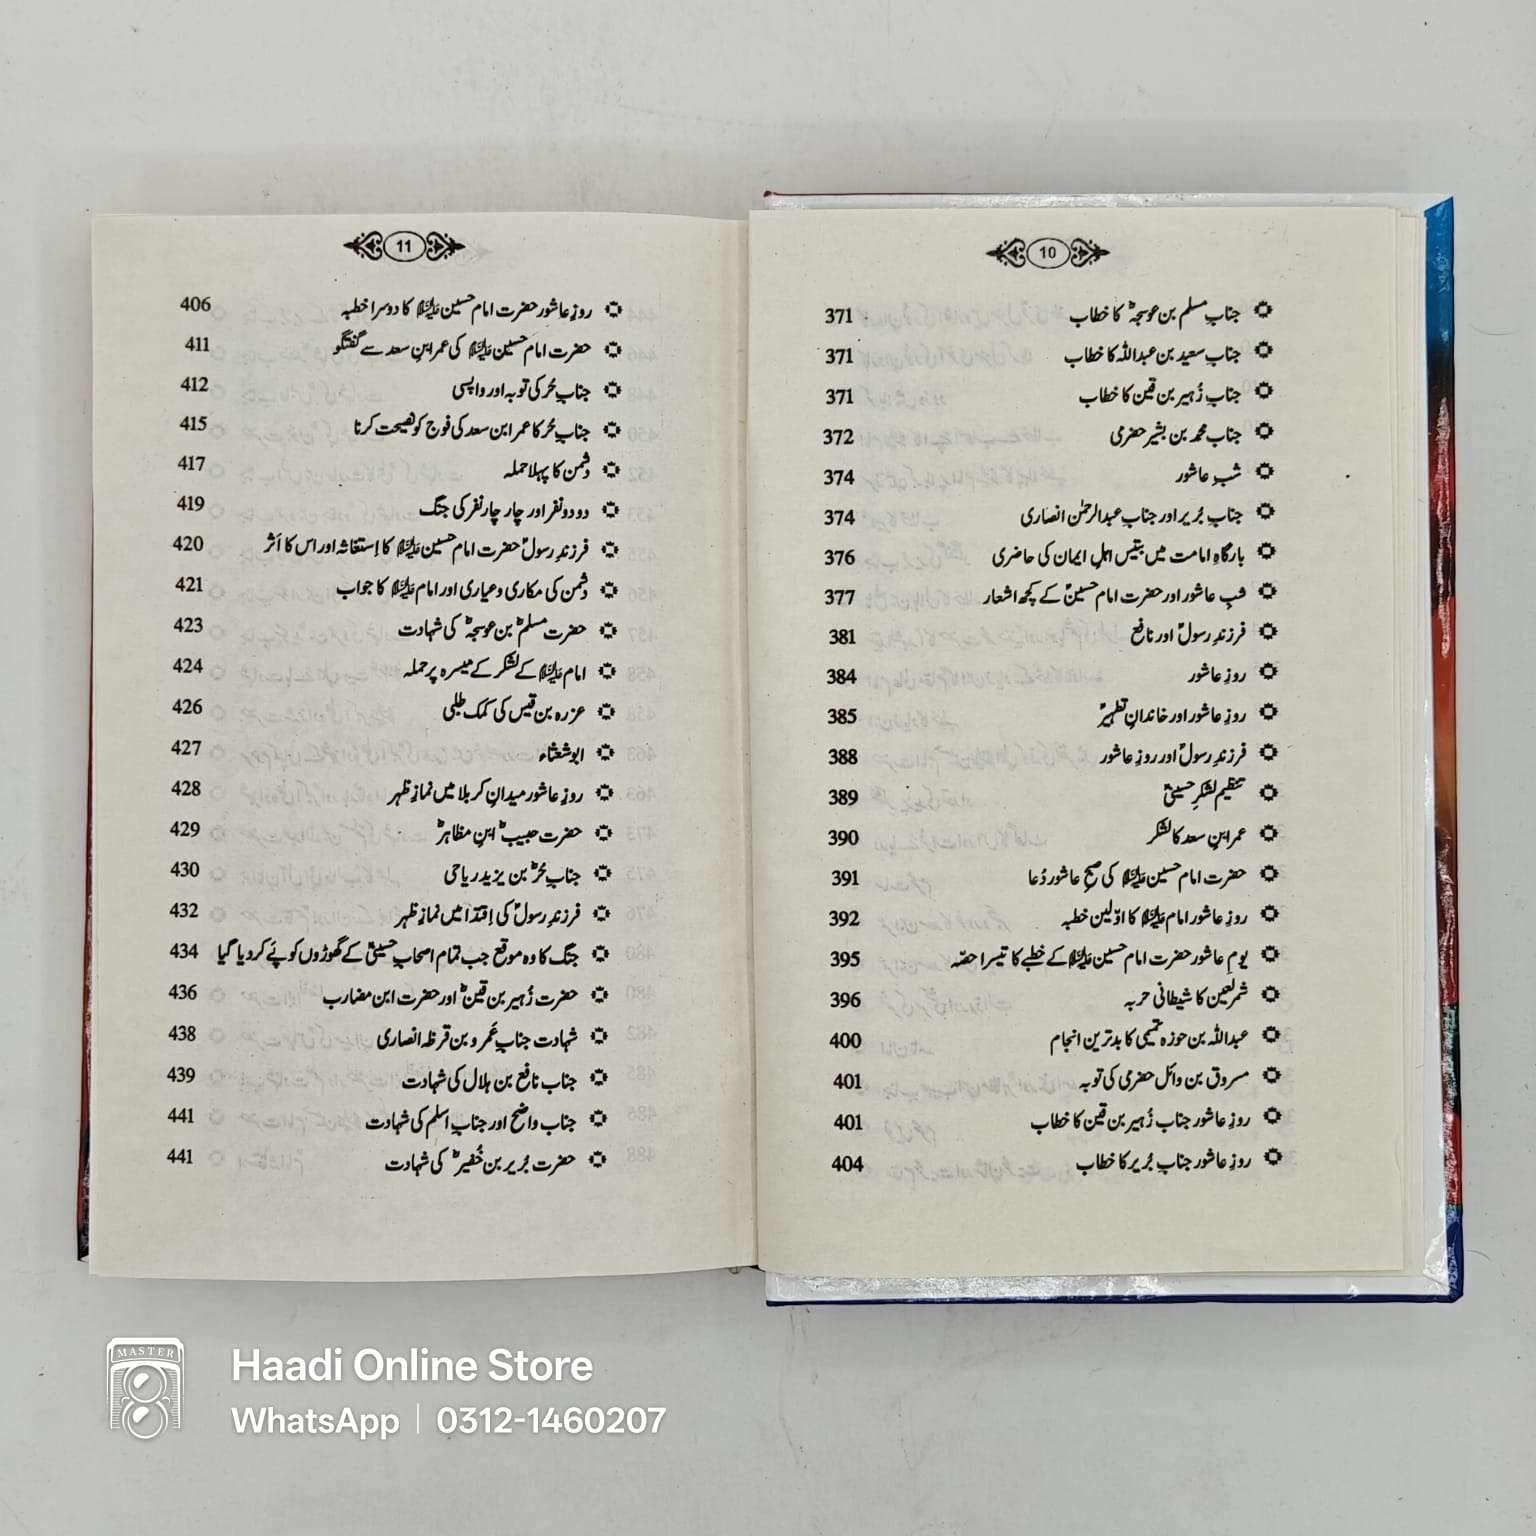 10
جنابِ مسلم بن عوسجہؓ کا خطاب 371
جنابِ سعید بن عبداللہ کا خطاب 371
جنابِ زُہیر بن قین کا خطاب 371
جناب محمد بن بشیر حضرمی 372
شبِ عاشور 374
جنابِ بُریر اور جنابِ عبدالرحمٰن انصاری 374
بارگاہِ امامت میں بتیس اہلِ ایمان کی حاضری 376
شبِ عاشور اور حضرت امام حسینؑ کے کچھ اشعار 377
فرزندِ رسولؐ اور نافع 381
روزِ عاشور 384
روزِ عاشور اور خاندانِ تطہیرؑ 385
فرزندِ رسولؐ اور روزِ عاشور 388
تنظیم لشکرِ حسینیؑ 389
عمر ابنِ سعد کا لشکر 390
حضرت امام حسین علیہ السلام کی صبحِ عاشور دُعا 391
روزِ عاشور امام علیہ السلام کا اوّلین خطبہ 392
یومِ عاشور حضرت امام حسین علیہ السلام کے خطبے کا تیسرا حصّہ 395
شمر لعین کا شیطانی حربہ 396
عبداللہ بن حوزہ تمیمی کا بدترین انجام 400
مسروق بن وائل حضرمی کی توبہ 401
روزِ عاشور جناب زُہیر بن قین کا خطاب 401
روزِ عاشور جنابِ بُریر کا خطاب 404
11
روزِ عاشور حضرت امام حسین علیہ السلام کا دوسرا خطبہ 406
حضرت امام حسین علیہ السلام کی عمر ابنِ سعد سے گفتگو 411
جنابِ حُر کی توبہ اور واپسی 412
جنابِ حُر کا عمر ابن سعد کی فوج کو نصیحت کرنا 415
دشمن کا پہلا حملہ 417
دو دو نفر اور چار چار نفر کی جنگ 419
فرزندِ رسولؐ حضرت امام حسین علیہ السلام کا اِستغاثہ اور اس کا اَثر 420
دشمن کی مکاری و عیاری اور امام علیہ السلام کا جواب 421
حضرت مسلمؓ بن عوسجہؓ کی شہادت 423
امام علیہ السلام کے لشکر کے میسرہ پر حملہ 424
عزرہ بن قیس کی کمک طلبی 426
ابوشعثاء 427
روزِ عاشور میدانِ کربلا میں نمازِ ظہر 428
حضرت حبیبؓ ابنِ مظاہرؓ 429
جنابِ حُرؓ بن یزید ریاحی 430
فرزندِ رسولؐ کی اِقتدا میں نمازِ ظہر 432
جنگ کا وہ موقع جب تمام اصحابِ حسینیؑ کے گھوڑوں کو پَے کر دیا گیا 434
حضرت زُہیر بن قینؓ اور حضرت ابن مضارب 436
شہادت جنابِ عَمرو بن قرظہ انصاری 438
جناب نافع بن ہلال کی شہادت 439
جناب واضح اور جنابِ اسلم کی شہادت 441
حضرت بُریر بن خُضیرؓ کی شہادت 441
MASTER
Haadi Online Store
WhatsApp | 0312-1460207